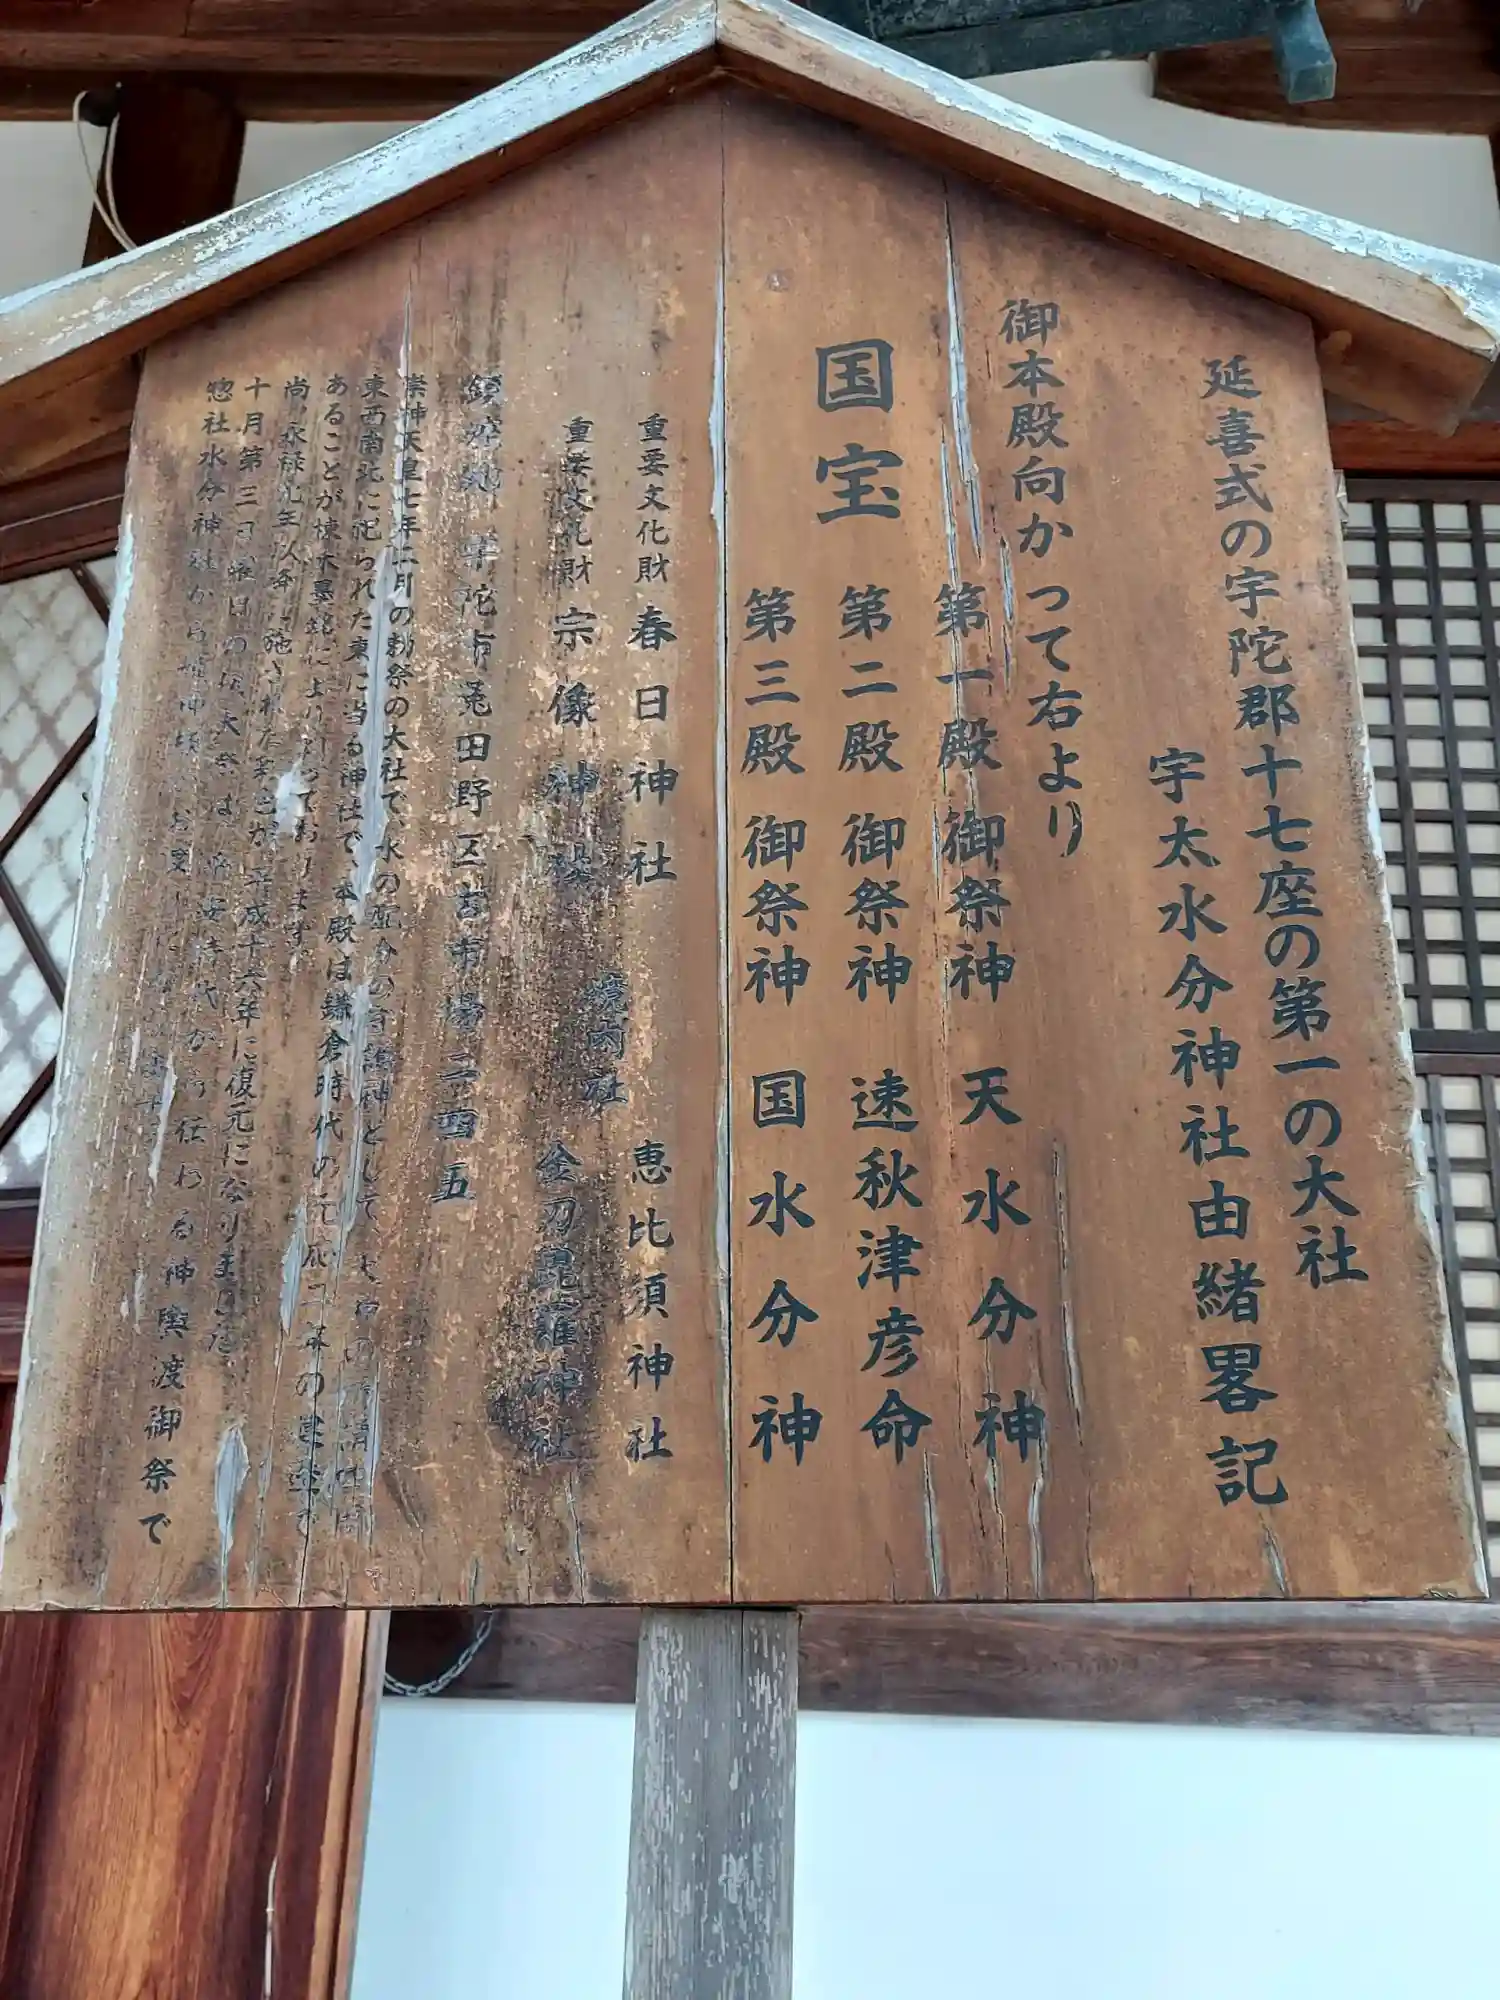 延喜式の宇陀郡十七座の第一の大社
宇太水分神社由緒畧記
御本殿向かって右より
第一殿 御祭神 天水分神
国宝 第二殿 御祭神 速秋津彦命
第三殿 御祭神 国水分神
重要文化財 春日神社 恵比須神社
境内社
重要文化財 宗像神社 金刀毘羅神社
鎮座地 宇陀市菟田野区古市場二四五
崇神天皇七年二月の勅祭の大社で水の配分の
東西南北に祀られた東に当る神社で、本殿は鎌倉時代の元応二年の建立で
あることが棟木墨銘によりわかっております
尚、永禄元年 施された 平成十六年に復元になりました
十月第三日曜日の 大祭は 平安時代から伝わる神輿渡御祭で
惣社水分神社から